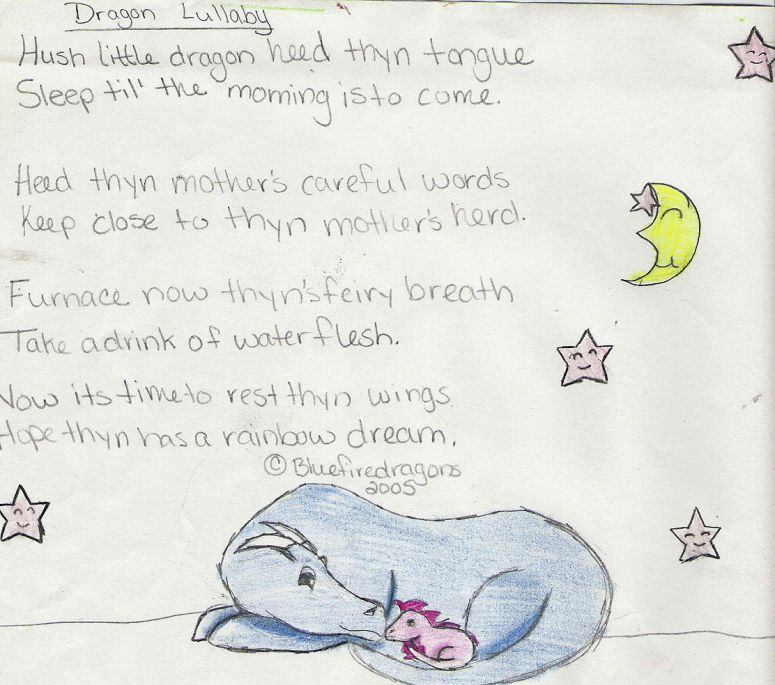 Dragon Lullaby
Hush little dragon heed thyn tongue
Sleep til' the morning is to come.
Heed thyn mother's careful words
Keep close to thyn mother's herd.
Furnace now thyn's feiry breath
Take a drink of water flesh.
Now its time to rest thyn wings
Hope thyn has a rainbow dream.
© Bluefiredragons
2005